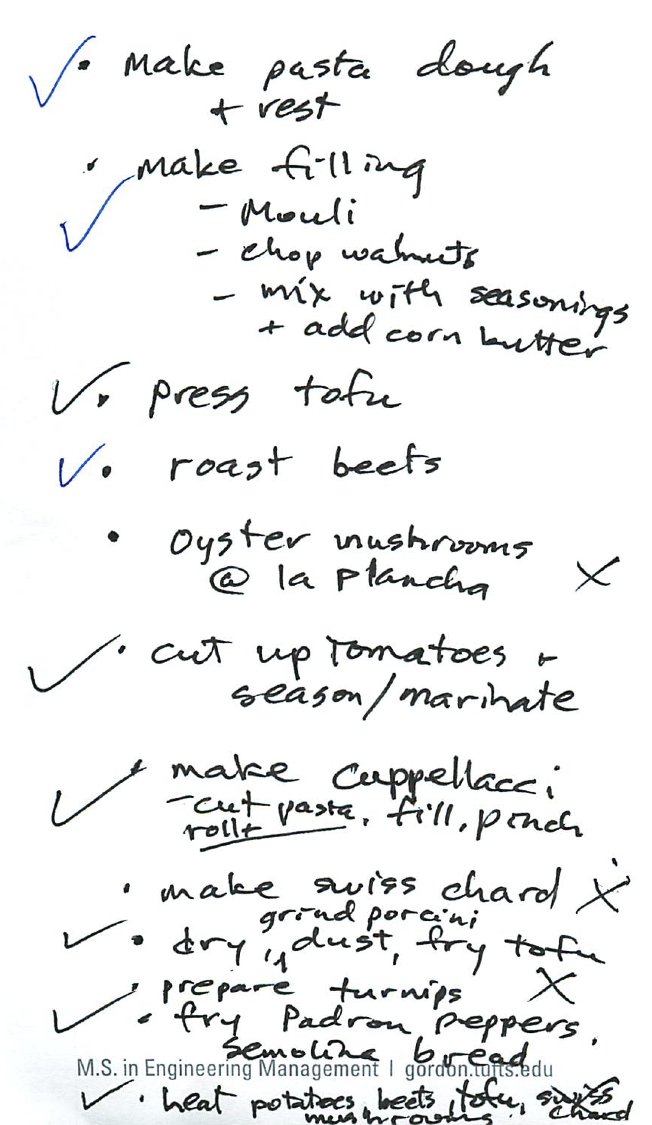 ✓ • Make pasta dough
+ rest
• Make filling
✓ - Mouli
- chop walnuts
- mix with seasonings
+ add corn butter
✓ • press tofu
✓ • roast beets
• oyster mushrooms
@ la plancha X
✓ • cut up tomatoes +
season/marinate
✓ • make Cappellacci
- cut pasta, fill, pinch
roll +
• make swiss chard X
grind porcini
✓ • dry, dust, fry tofu
• prepare turnips X
✓ • fry Padron peppers,
semolina bread
M.S. in Engineering Management | gordon.tufts.edu
✓ • heat potatoes, beets, tofu, swiss
mushrooms chard